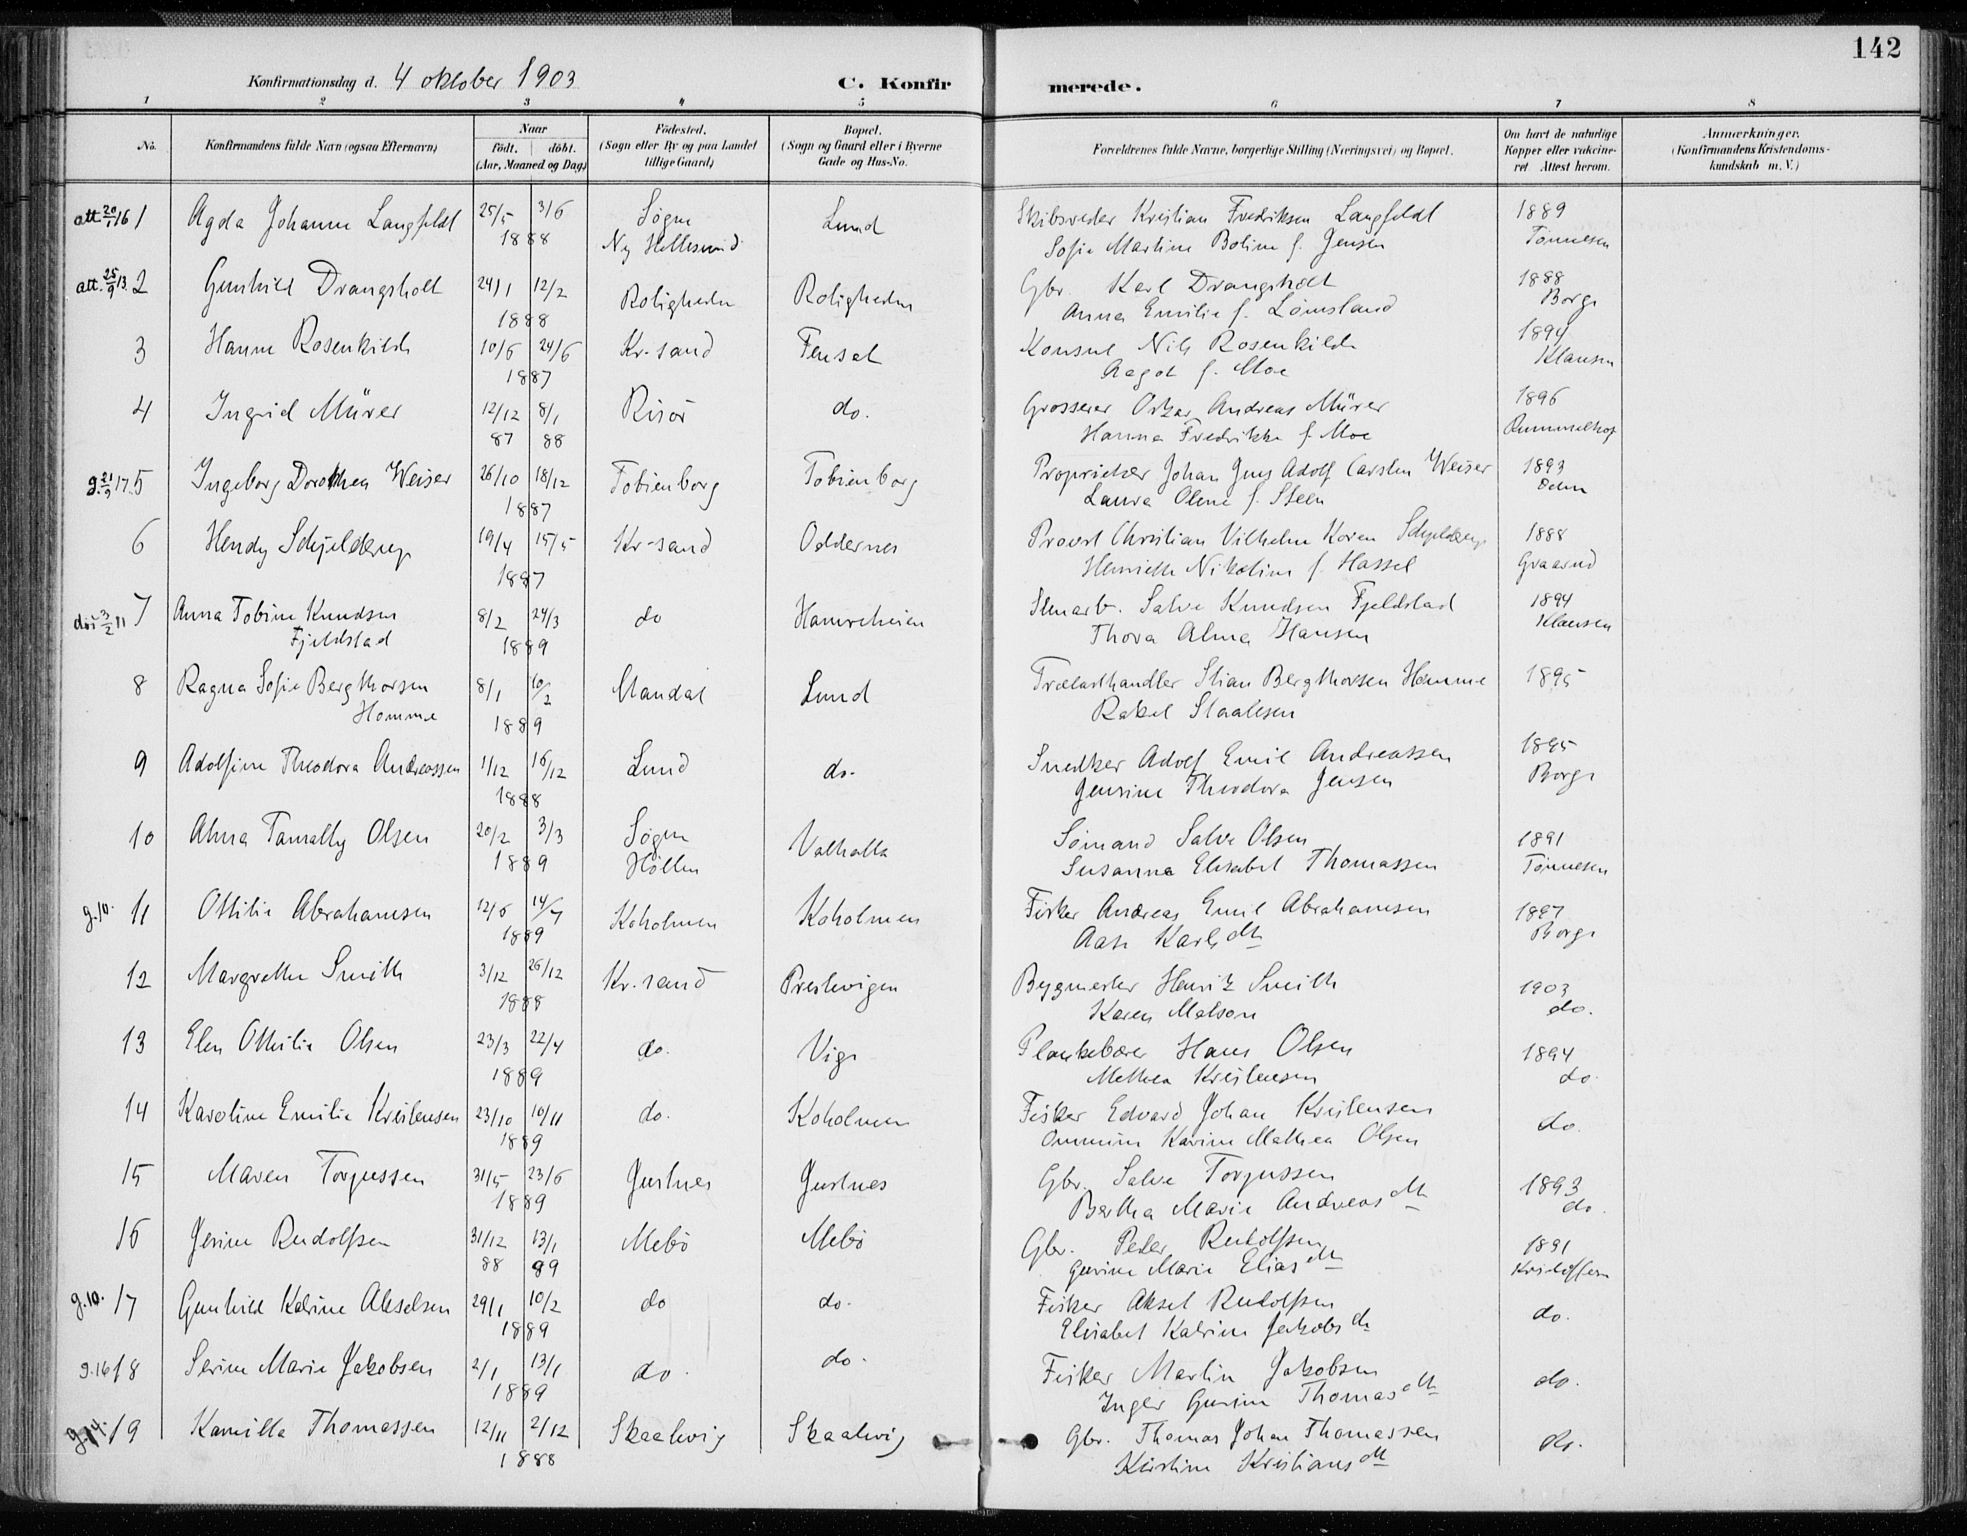 142
Konfirmationsdag d. 4 oktober 1903 C. Konfir merede.
1 2 3 4 5 6 7 8
No. Konfirmandens fulde Navn (ogsaa Efternavn) Naar födt. döbt. (Aar, Maaned og Dag) Födested. (Sogn eller By og paa Landet tillige Gaard) Bopæl. (Sogn og Gaard eller i Byerne Gade og Hus-No. Forældrenes fulde Navne, borgerlige Stilling (Næringsvei) og Bopæl. Om havt de naturlige Kopper eller vakcineret Attest herom. Anmærkninger. (Konfirmandens Kristendomskundskab m. V.)
att. 20/1 16 1 Agda Johanne Langfeldt 25/5 3/6 Søgne Lund Skibsreder Kristian Fredriksen Langfeldt 1889
1888 Ny Hellesund Sofie Martine Boline f. Jensen Tønnesen
att. 25/9 13. 2 Gunhild Drangsholt 24/1 12/2 Roligheden Roligheden Gbr. Karl Drangsholt 1888
1888 Anna Emilie f. Lømsland Borge
3 Hanne Rosenkilde 10/6 24/6 Kr-sand Tensel Konsul Nils Rosenkilde 1894
1887 Aagot f. Moe Klausen
4 Ingrid Mürer 12/12 8/1 Risör do. Grosserer Oskar Andreas Mürer 1896
87 88 Hanna Fredrikke f. Moe Rummelhof
g. 21/9 17. 5 Ingeborg Dorothea Weiser 26/10 18/12 Tobienborg Tobienborg Proprietær Johan Jens Adolf Carsten Weiser 1893
1887 Laura Olene f. Steen
6 Hendy Schjelderup 19/4 15/5 Kr-sand Oddernes Provst Christian Vilhelm Koren Schjelderup 1888
1887 Henriette Nikoline f. Hassel Graarud
död 3/2 11 7 Anna Tobine Knudsen 8/2 24/3 do Hamreheien Salve Knudsen Fjeldstad 1894
Fjeldstad 1889 Thora Alma Hansen Klausen
8 Ragna Sofie Bergthorsen 8/1 10/2 Mandal Lund Trælasthandler Stian Bergthorsen Homme 1895
Homme 1889 Rakel Staalesen
9 Adolfine Theodora Andreassen 1/12 16/12 Lund do. Snedker Adolf Emil Andreassen 1895
1888 Jensine Theodora Jensen Borge
10 Alma Tomally Olsen 20/2 3/3 Søgne Valhalla Sömand Salve Olsen 1891
1889 Höllen Susanna Elisabet Thomassen Tønnesen
g. 10. 11 Ottilie Abrahamsen 12/6 14/7 Koholmen Koholmen Fisker Andreas Emil Abrahamsen 1897
1889 Aase Karls dtr Borge
12 Margrethe Smith 3/12 26/12 Kr.sand Prestvigen Bygmester Henrik Smith 1903
1888 Karen Matson do.
13 Elen Othilie Olsen 23/3 22/4 do. Vige Plankebærer Hans Olsen 1894
1889 Mathea Kristensen do.
14 Karoline Emilie Kristensen 23/10 10/11 do. Koholmen Fisker Edvard Johan Kristensen do.
1889 Ommine Karine Mathea Olsen
15 Maren Torjussen 31/5 23/6 Justnes Justnes Gbr. Salve Torjussen 1893
1889 Bertha Marie Andreas dtr do.
16 Jesine Rudolfsen 31/12 13/1 Mebö Mebö Gbr. Peder Rudolfsen 1891
88 89 Gurine Marie Elias dtr Kristoffersen
g.10. 17 Gunhild Katrine Akselsen 29/1 10/2 do do. Fisker Aksel Rudolfsen do.
1889 Elisabet Katrine Jakobs dtr
g.16 18 Serine Marie Jakobsen 2/1 13/1 do. do. Fisker Martin Jakobsen do.
1889 Inger Gurine Thomas dtr
g.14. 19 Kamilla Thomassen 12/11 2/12 Skaalevig Skaalevig Gbr. Thomas Johan Thomassen do.
1888 Kirstine Kristians dtr